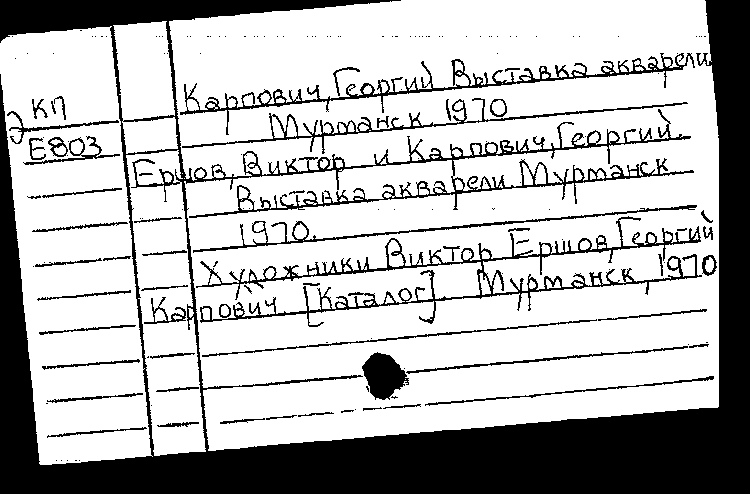 КП
Е803
Карпович, Георгий Выставка акварели.
Мурманск 1970
Ершов, Виктор и Карпович, Георгий.
Выставка акварели. Мурманск
1970.
Художники Виктор Ершов, Георгий
Карпович. [Каталог]. Мурманск, 1970